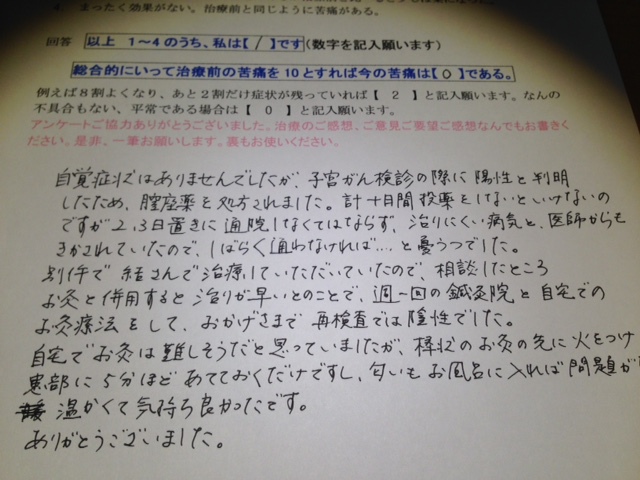 4. まったく効果がない。治療前と同じように苦痛がある。
回答 以上 1～4のうち、私は【 / 】です(数字を記入願います)
総合的にいって治療前の苦痛を10とすれば今の苦痛は【 0 】である。
例えば8割よくなり、あと2割だけ症状が残っていれば【 2 】と記入願います。なんの
不具合もない、平常である場合は【 0 】と記入願います。
アンケートご協力ありがとうございました。治療のご感想、ご意見ご要望ご感想なんでもお書きく
ださい。是非、一筆お願いします。裏もお使いください。
自覚症状はありませんでしたが、子宮がん検診の際に陽性と判明
したため、膣座薬を処方されました。計十日間投薬をしないといけないの
ですが2,3日置きに通院しなくてはならず、治りにくい病気と、医師からも
きかされていたので、しばらく通わなければ....と憂うつでした。
別件で 結さんで治療していただいていたので、相談したところ
お灸と併用すると治りが早いとのことで、週一回の鍼灸院と自宅での
お灸療法をして、おかげさまで 再検査では陰性でした。
自宅でお灸は難しそうだと思っていましたが、棒状のお灸の先に火をつけ
患部に5分ほどあてておくだけですし、匂いもお風呂に入れば問題が
温かくて気持ち良かったです。
ありがとうございました。